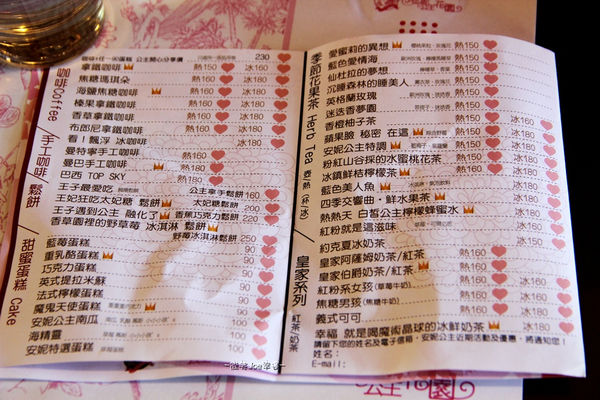 咖啡Coffee
咖啡+任一夾蛋糕 公主開心分享價 230
拿鐵咖啡 熱150 冰160
焦糖瑪琪朵 熱160 冰180
海鹽焦糖咖啡 熱160 冰180
榛果拿鐵咖啡 熱160 冰180
香草拿鐵咖啡 熱160 冰180
布郎尼拿鐵咖啡 熱160 冰180
看!飄浮 冰咖啡 冰180
手工咖啡
曼特寧手工咖啡 熱160
曼巴手工咖啡 熱160
巴西 TOP SKY 熱160
鬆餅
王子最愛吃 公主拿手鬆餅 160
王妃狂吃太妃糖 鬆餅 太妃糖鬆餅 200
王子遇到公主 融化了 香蕉巧克力鬆餅 220
香草園裡的野草莓 冰淇淋 鬆餅
野莓冰淇淋鬆餅 250
甜蜜蛋糕 Cake
藍莓蛋糕 90
重乳酪蛋糕 90
巧克力蛋糕 90
英式提拉米蘇 90
法式檸檬蛋糕 90
魔鬼天使蛋糕 100
安妮公主南瓜 100
海精靈 100
安妮特選蛋糕 100
季節花果茶 Herb Tea 壺/熱 (杯/冰)
愛蜜莉的異想 熱150
藍色愛情海 熱150
仙杜拉的夢想 熱150
沉睡森林的睡美人 熱150
英格蘭玫瑰 熱150
迷迭香夢園 熱150
香橙柚子茶 熱150 冰160
蘋果臉 秘密 在這 熱150 冰160
安妮公主特調 熱150 冰160
粉紅山谷採的水蜜桃花茶 熱160 冰160
冰鎮鮮桔檸檬茶 熱160 冰160
藍色美人魚 冰160
四季交響曲‧鮮水果茶 冰180
熱熱天 白皙公主檸檬蜂蜜水 冰160
紅粉就是這滋味 冰150
約克夏冰奶茶 冰150
皇家系列 紅茶 奶茶
皇家阿薩姆奶茶/紅茶 熱160 冰160
皇家伯爵奶茶/紅茶 熱160 冰160
紅粉系女孩(草莓牛奶) 熱160 冰160
焦糖男孩(焦糖牛奶) 熱160 冰160
義式可可 熱160 冰160
幸福 就是喝魔術晶球的冰鮮奶茶 冰160
請留下您的姓名及電子信箱,安妮公主近期活動及優惠,將通知您!
姓名:
E-mail: